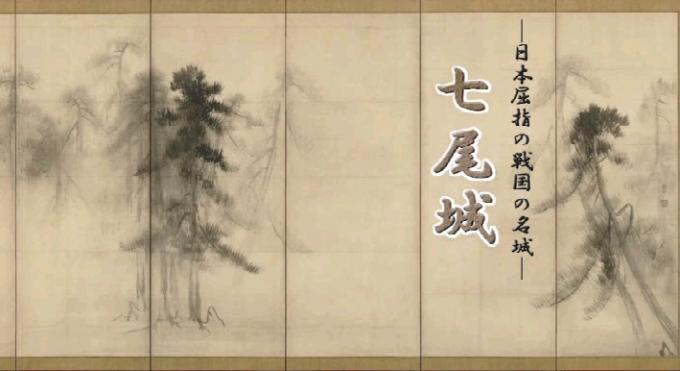 ―日本屈指の戦国の名城―
七尾城